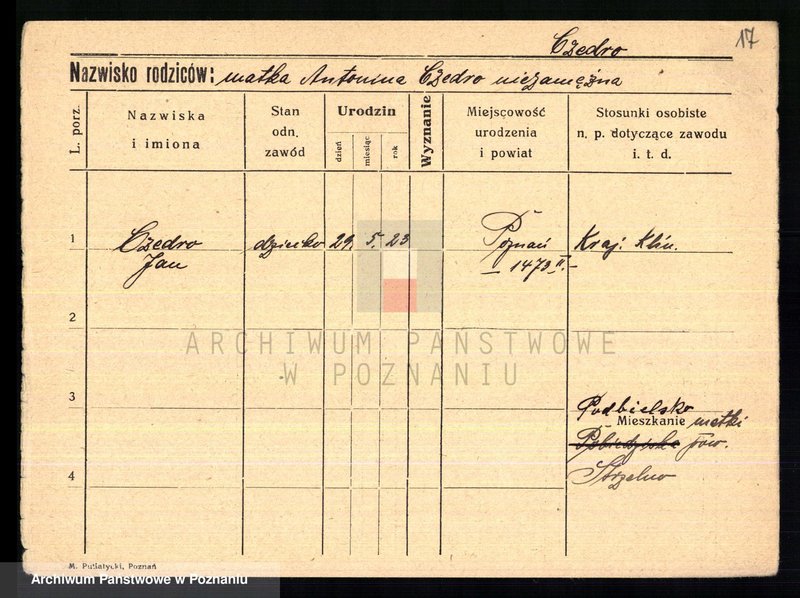 Czedro
17
Nazwisko rodziców: matka Antonina Czedro niezamężna
L. porz.
Nazwiska
i imiona
Stan
odn.
zawód
Urodzin
dzień
miesiąc
rok
Wyznanie
Miejscowość
urodzenia
i powiat
Stosunki osobiste
n. p. dotyczące zawodu
i. t. d.
1 Czedro dziecko 29. 5. 23 Poznań Kraj. Klin.
Jan — 1473 II. —
2
ARCHIWUM PAŃSTWOWE
W POZNANIU
3
Podbielsko
Mieszkanie matki
Pobiedziska pow.
4 Strzelno
M. Putiatycki, Poznań
Archiwum Państwowe w Poznaniu